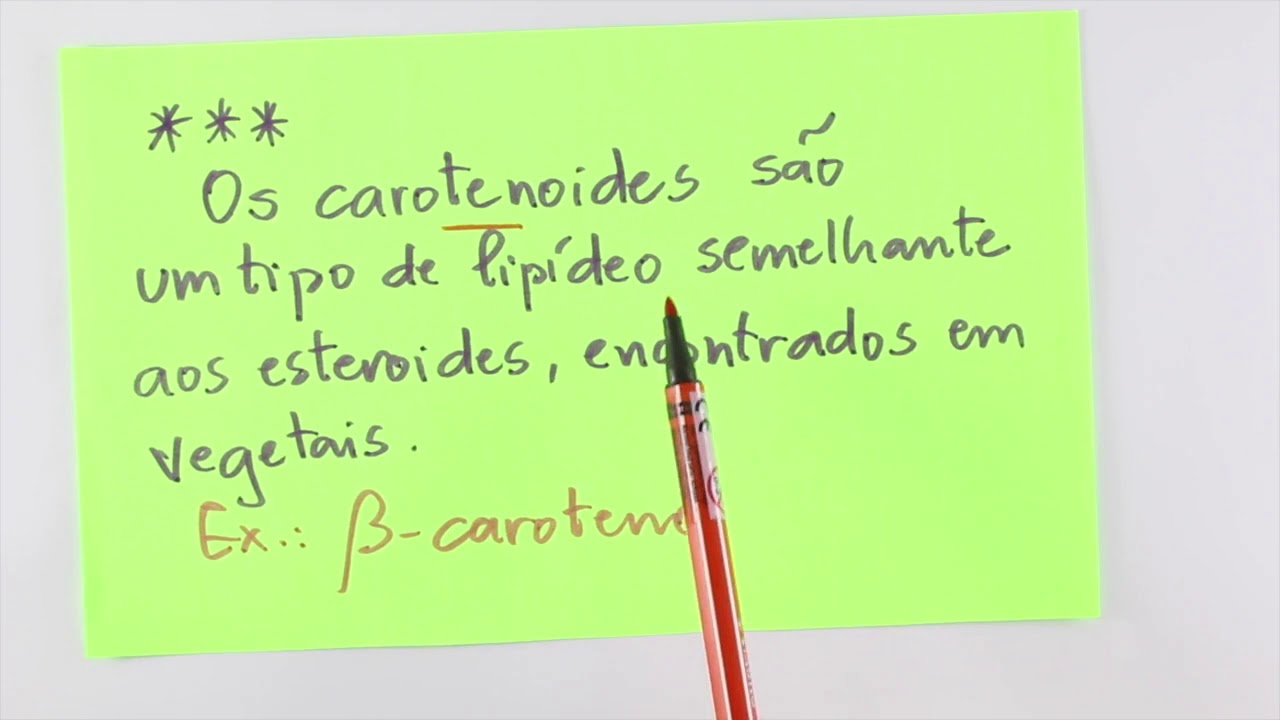 ***
Os carotenoides são
um tipo de lipídeo semelhante
aos esteroides, encontrados em
vegetais.
Ex.: β-caroteno